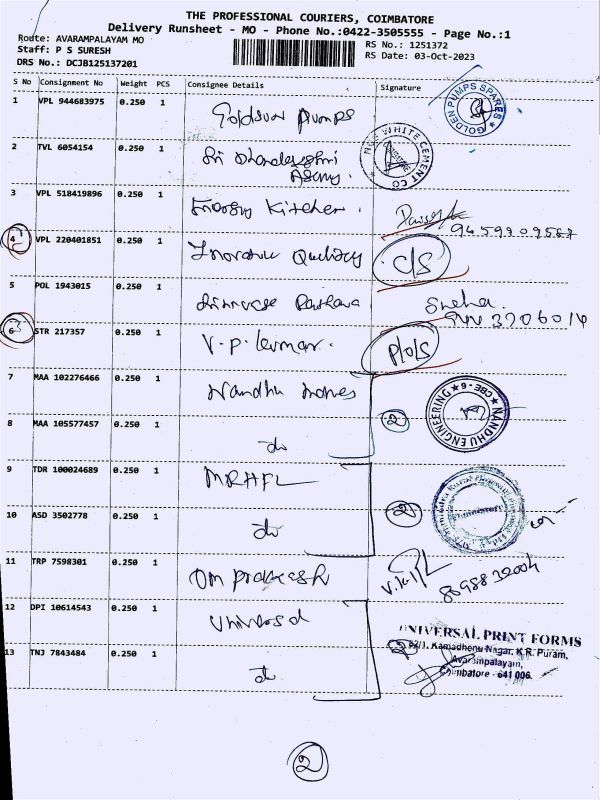 THE PROFESSIONAL COURIERS, COIMBATORE
Delivery Runsheet - MO - Phone No.:0422-3505555 - Page No.:1
Route: AVARAMPALAYAM MO
Staff: P S SURESH
DRS No.: DCJB125137201
RS No.: 1251372
RS Date: 03-Oct-2023
S No Consignment No Weight PCS Consignee Details Signature
1 VPL 944683975 0.250 1 Pumps
GOLDEN PUMPS SPARES
2 TVL 6054154 0.250 1 Sri
Agency.
WHITE CEMENT CO
3 VPL 518419896 0.250 1 Energy Kitchen.
4 VPL 220401851 0.250 1 C/S
5 POL 1943015 0.250 1 Sneha
6 STR 217357 0.250 1 V.P. Kumar. P/O/S
7 MAA 102276466 0.250 1 Nandhu
2
NANDHU ENGINEERING CBE-6
8 MAA 105577457 0.250 1 do
9 TDR 100024689 0.250 1 MRHFL
2
10 ASD 3502778 0.250 1 do
11 TRP 7598301 0.250 1 Om prakash
12 DPI 10614543 0.250 1 Universal
UNIVERSAL PRINT FORMS
62/1, Kamadhenu Nagar, K.R. Puram,
Avarampalayam,
Coimbatore - 641 006.
13 TNJ 7843484 0.250 1 do
2